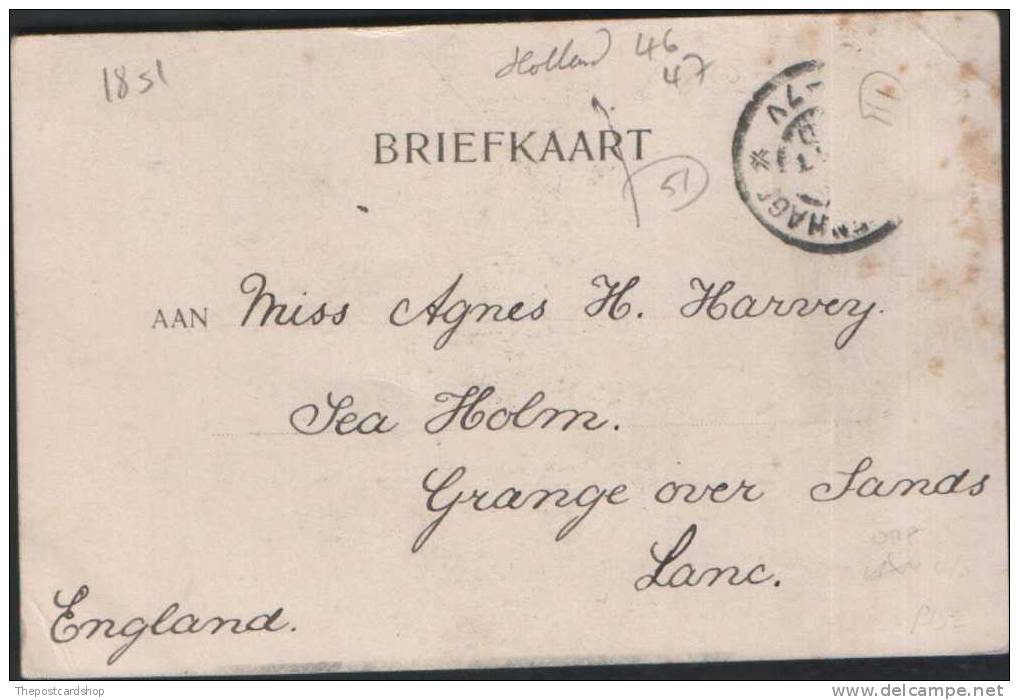 1851
Holland 46
47
BRIEFKAART
51
AAN Miss Agnes H. Harvey.
Sea Holm.
Grange over Sands
Lanc.
England.
Thepostcardshop
http://www.delcampe.net